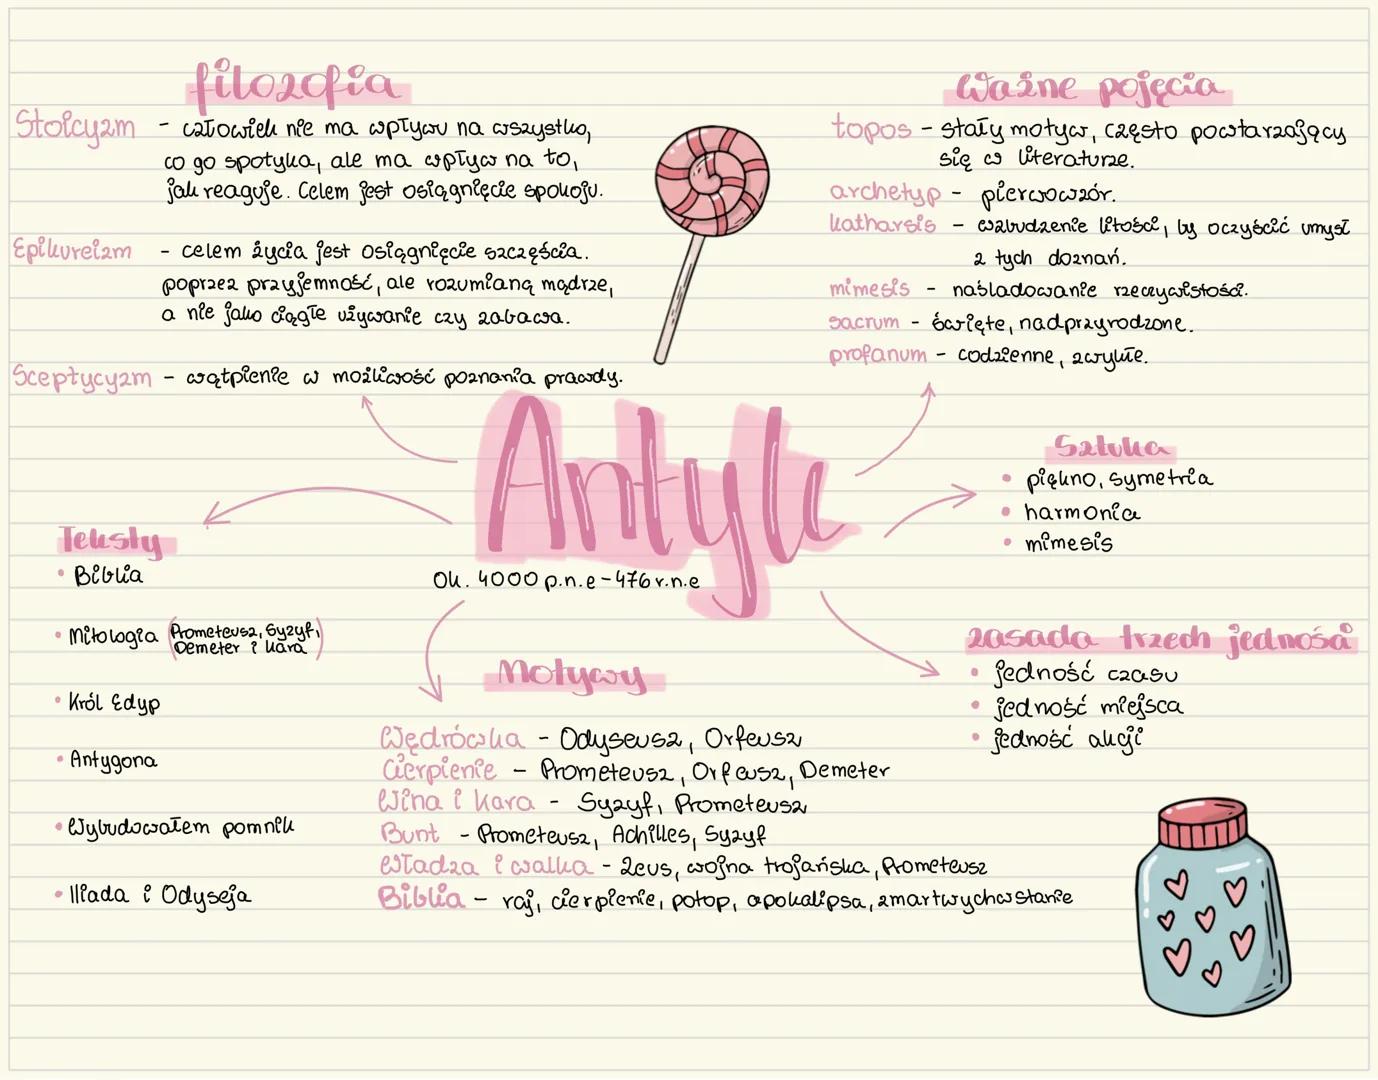 filozofia
Stoicyzm - człowiek nie ma wpływu na wszystko,
co go spotyka, ale ma wpływ na to,
jak reaguje. Celem jest osiągnięcie spokoju.
Epikureizm - celem życia jest osiągnięcie szczęścia.
poprzez przyjemność, ale rozumianą mądrze,
a nie jako ciągłe używanie czy zabawa.
Sceptycyzm - wątpienie w możliwość poznania prawdy.
Ważne pojęcia
topos - stały motyw, często powtarzający
się w literaturze.
archetyp - pierwowzór.
katharsis - wzbudzenie litości, by oczyścić umysł
z tych doznań.
mimesis - naśladowanie rzeczywistości.
sacrum - święte, nadprzyrodzone.
profanum - codzienne, zwykłe.
Antyk
Ok. 4000 p.n.e - 476 r.n.e
Sztuka
• piękno, symetria
• harmonia
• mimesis
Teksty
• Biblia
• Mitologia (Prometeusz, Syzyf,
Demeter i Kora)
• Król Edyp
• Antygona
• Wybudowałem pomnik
• Iliada i Odyseja
Motywy
Wędrówka - Odyseusz, Orfeusz
Cierpienie - Prometeusz, Orfeusz, Demeter
Wina i kara - Syzyf, Prometeusz
Bunt - Prometeusz, Achilles, Syzyf
Władza i walka - Zeus, wojna trojańska, Prometeusz
Biblia - raj, cierpienie, potop, apokalipsa, zmartwychwstanie
zasada trzech jedności
• jedność czasu
• jedność miejsca
• jedność akcji